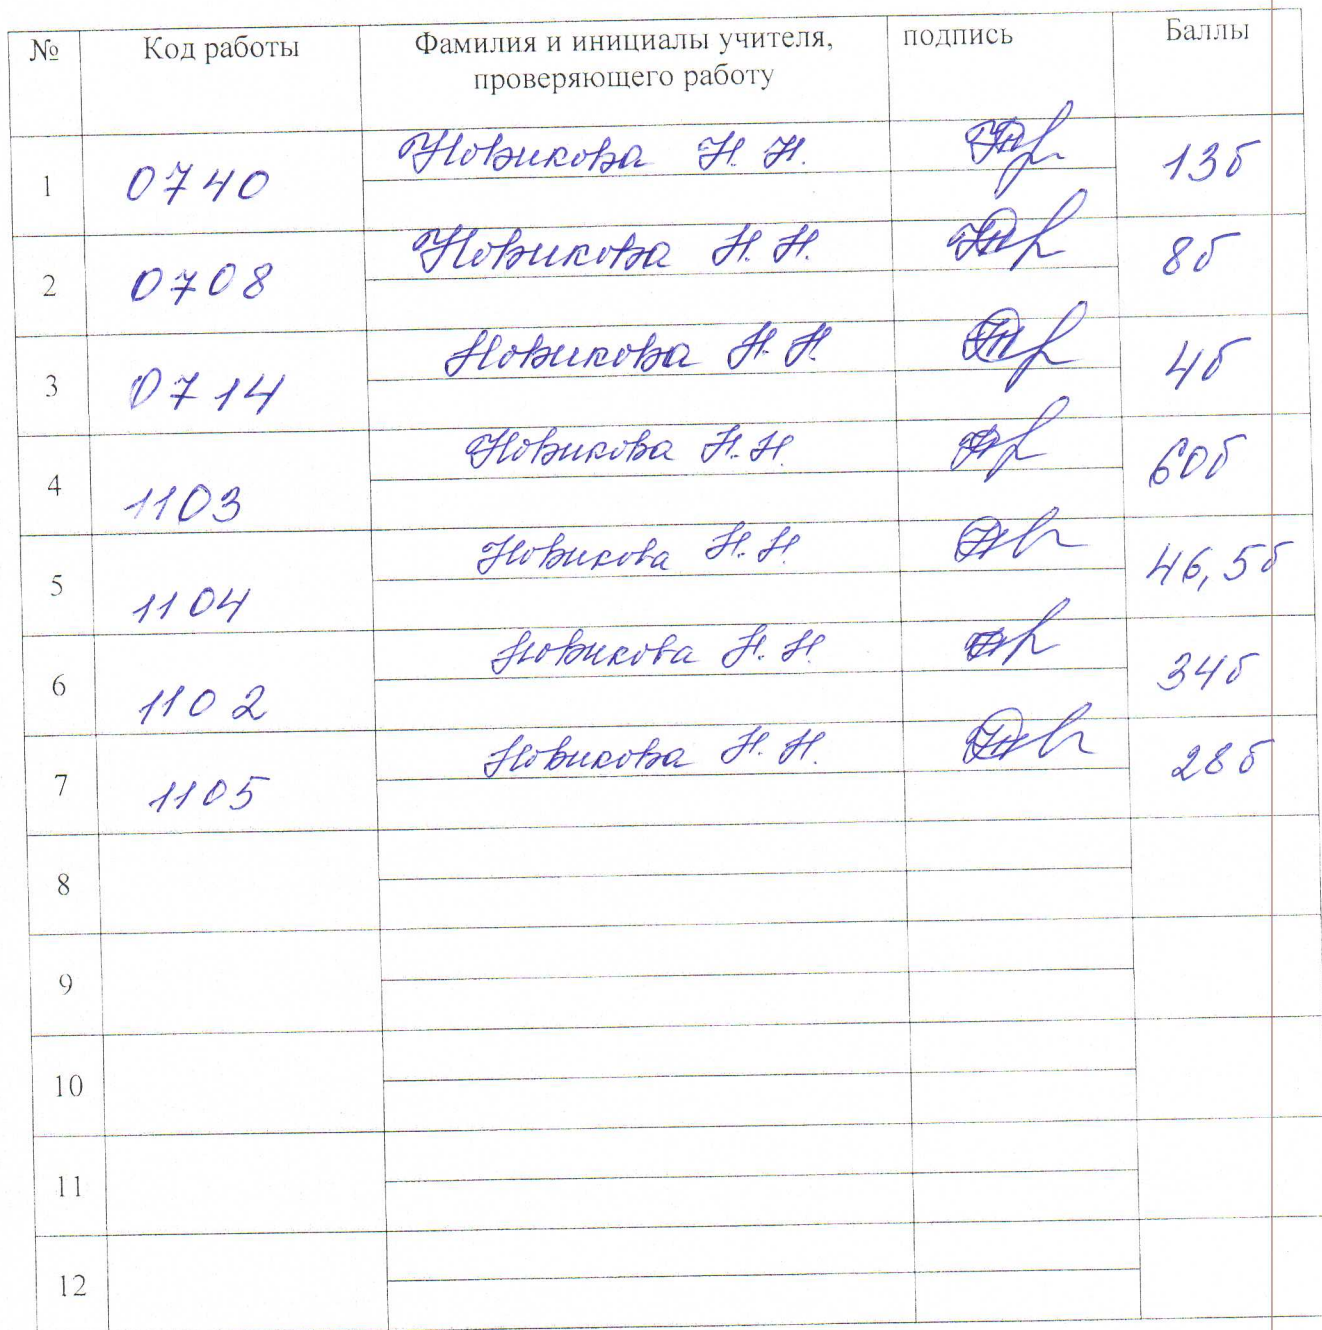 № Код работы Фамилия и инициалы учителя, подпись Баллы
проверяющего работу
1 0740 Новикова Н. Н. 13б
2 0708 Новикова Н. Н. 8б
3 0714 Новикова Н. Н. 4б
4 1103 Новикова Н. Н. 60б
5 1104 Новикова Н. Н. 46,5б
6 1102 Новикова Н. Н. 34б
7 1105 Новикова Н. Н. 28б
8
9
10
11
12